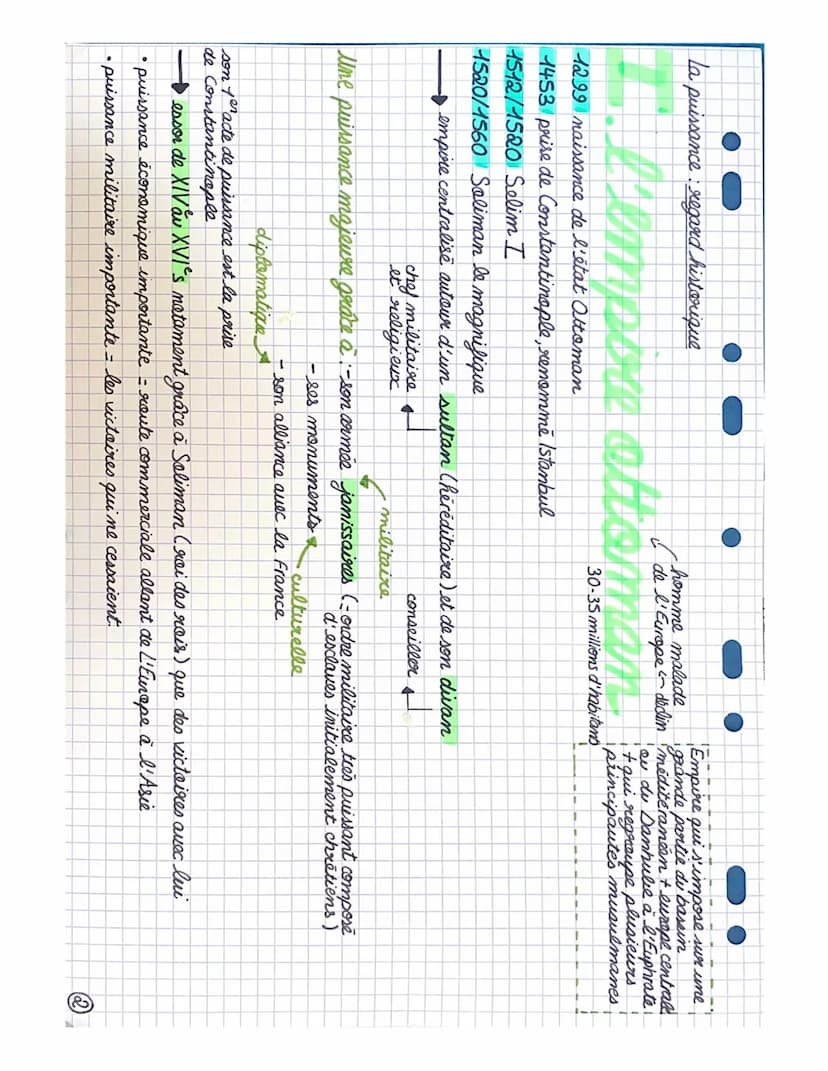 La puissance : regard historique
I. l'empire ottoman
homme malade
de l'Europe ~ déclin
30-35 millions d'habitans
Empire qui s'impose sur une
grande partie du bassin
méditeranéen + europe centrale
ou du Danhube à l'Euphrate
+ qui regroupe plusieurs
principautés musulmanes
1299 naissance de l'état Ottoman
1453 prise de Constantinople, renommé Istanbul
1512/1520 Selim I
1520/1560 Soliman le magnifique
→ empire centralisé autour d'un sultan (héréditaire) et de son divan
chef militaire
et religieux
conseiller
Une puissance majeure grâce à : - son armée janissaires (= ordre militaire très puissant composé
d'esclaves initialement chrétiens)
militaire
- ses monuments
culturelle
- son alliance avec la France
diplomatique
son 1er acte de puissance est la prise
de Constantinople
→ essor de XIVe au XVIe s notament grâce à Soliman (roi des rois) que des victoires avec lui
• puissance économique importante = route commerciale allant de L'Europe à l'Asie
• puissance militaire importante = les victoires qui ne cessaient.
2